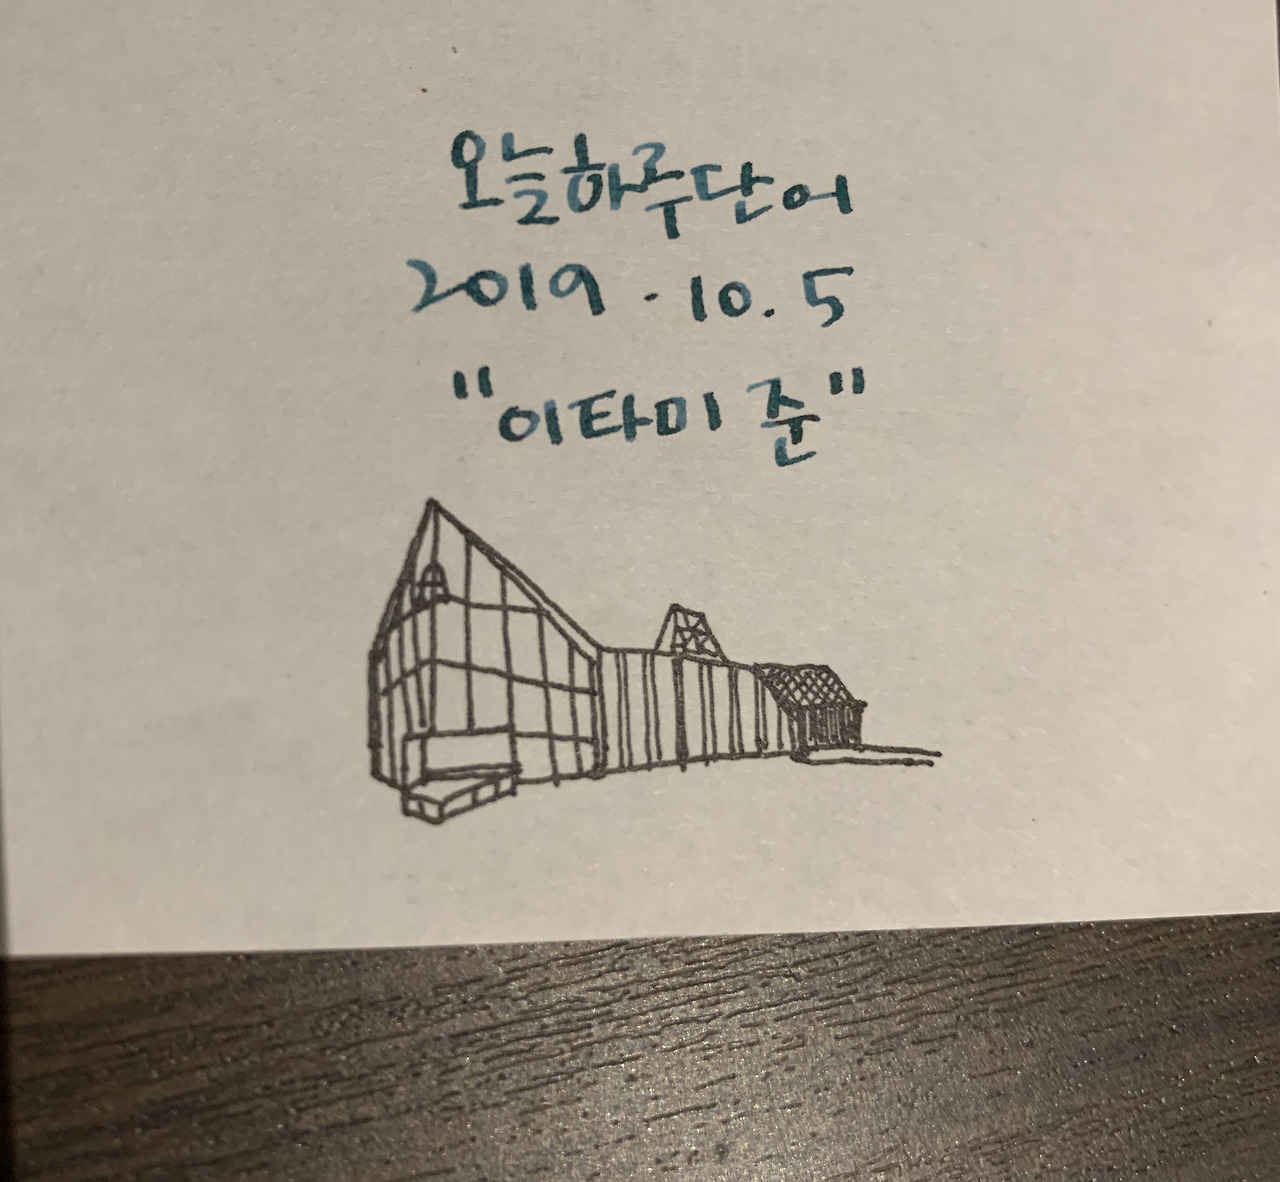 오늘하루단어
2019.10.5
"이타미 준"